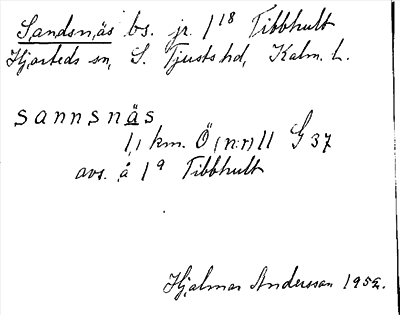 Sandsnäs bs. jr. 1¹⁸ Tibbhult
Hjorteds sn, S. Tjusts hd, Kalm. L.
sannsnäs
1,1 km. Ö (n:r) 11 G 37
avs. å 1⁹ Tibbhult
Hjalmar Andersson 1952.